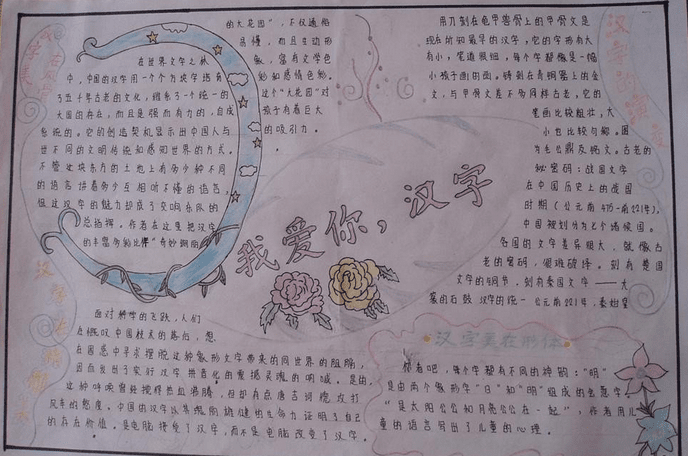 在世界文字之林
中，中国的汉字用一个个方块字培育
了五千年古老的文化，维系了一个统一的
大国的存在，而且是强而有力的，自成
系统的。它的创造契机显示出中国人与
世不同的文明传统和感知世界的方式。
不管这块东方的土地上有多少种不同
的语言 讲着多少互相听不懂的语言，
但这汉字的魅力却成了交响乐队的
总指挥。作者在这里把汉字
的丰富多的比作"奇妙
的大花园"，不仅通俗
易懂，而且生动形
象，富有文学色
彩和感情色彩。
这个"大花园"对
孩子有着巨大
的吸引力。
用刀刻在龟甲兽骨上的甲骨文是
现在所知最早的汉字，它的字形有大
有小，笔道很细，每个字都像是一幅
小孩子画的画。铸刻在青铜器上的金
文，与甲骨文差不多同样古老，它的
笔画比较粗壮，大
小也比较匀称。图
为毛公鼎及铭文。古老的
秘密码：战国文字
在中国历史上的战国
时期（公元前475-前221年），
中国被划分为七个诸侯国。
各国的文字差异很大，就像古
老的密码，很难破译。刻有楚国
文字的铜节，刻有秦国文字——大
篆的石鼓 汉字的统一 公元前221年，秦始皇
我爱你，汉字
面对神州的飞跃，人们
在慨叹中国技术的落后，您
在困惑中寻求摆脱这种象形文字带来的同世界的阻隔，
因而发出了实行汉字拼音化的震撼灵魂的呐喊。是的，
这种呼喊曾经搅拌热血沸腾，但却有点唐吉诃德攻打
风车的憨度。中国的汉字以其雄健的生命力证明了自己
的存在价值。是电脑接受了汉字，而不是电脑改变了汉字。
汉字美在形体
你看吧，每个字都有不同的神韵："明"
是由两个象形字"日"和"明"组成的会意字，
"是太阳公公和月亮公公在一起"，作者用儿
童的语言写出了儿童的心理。